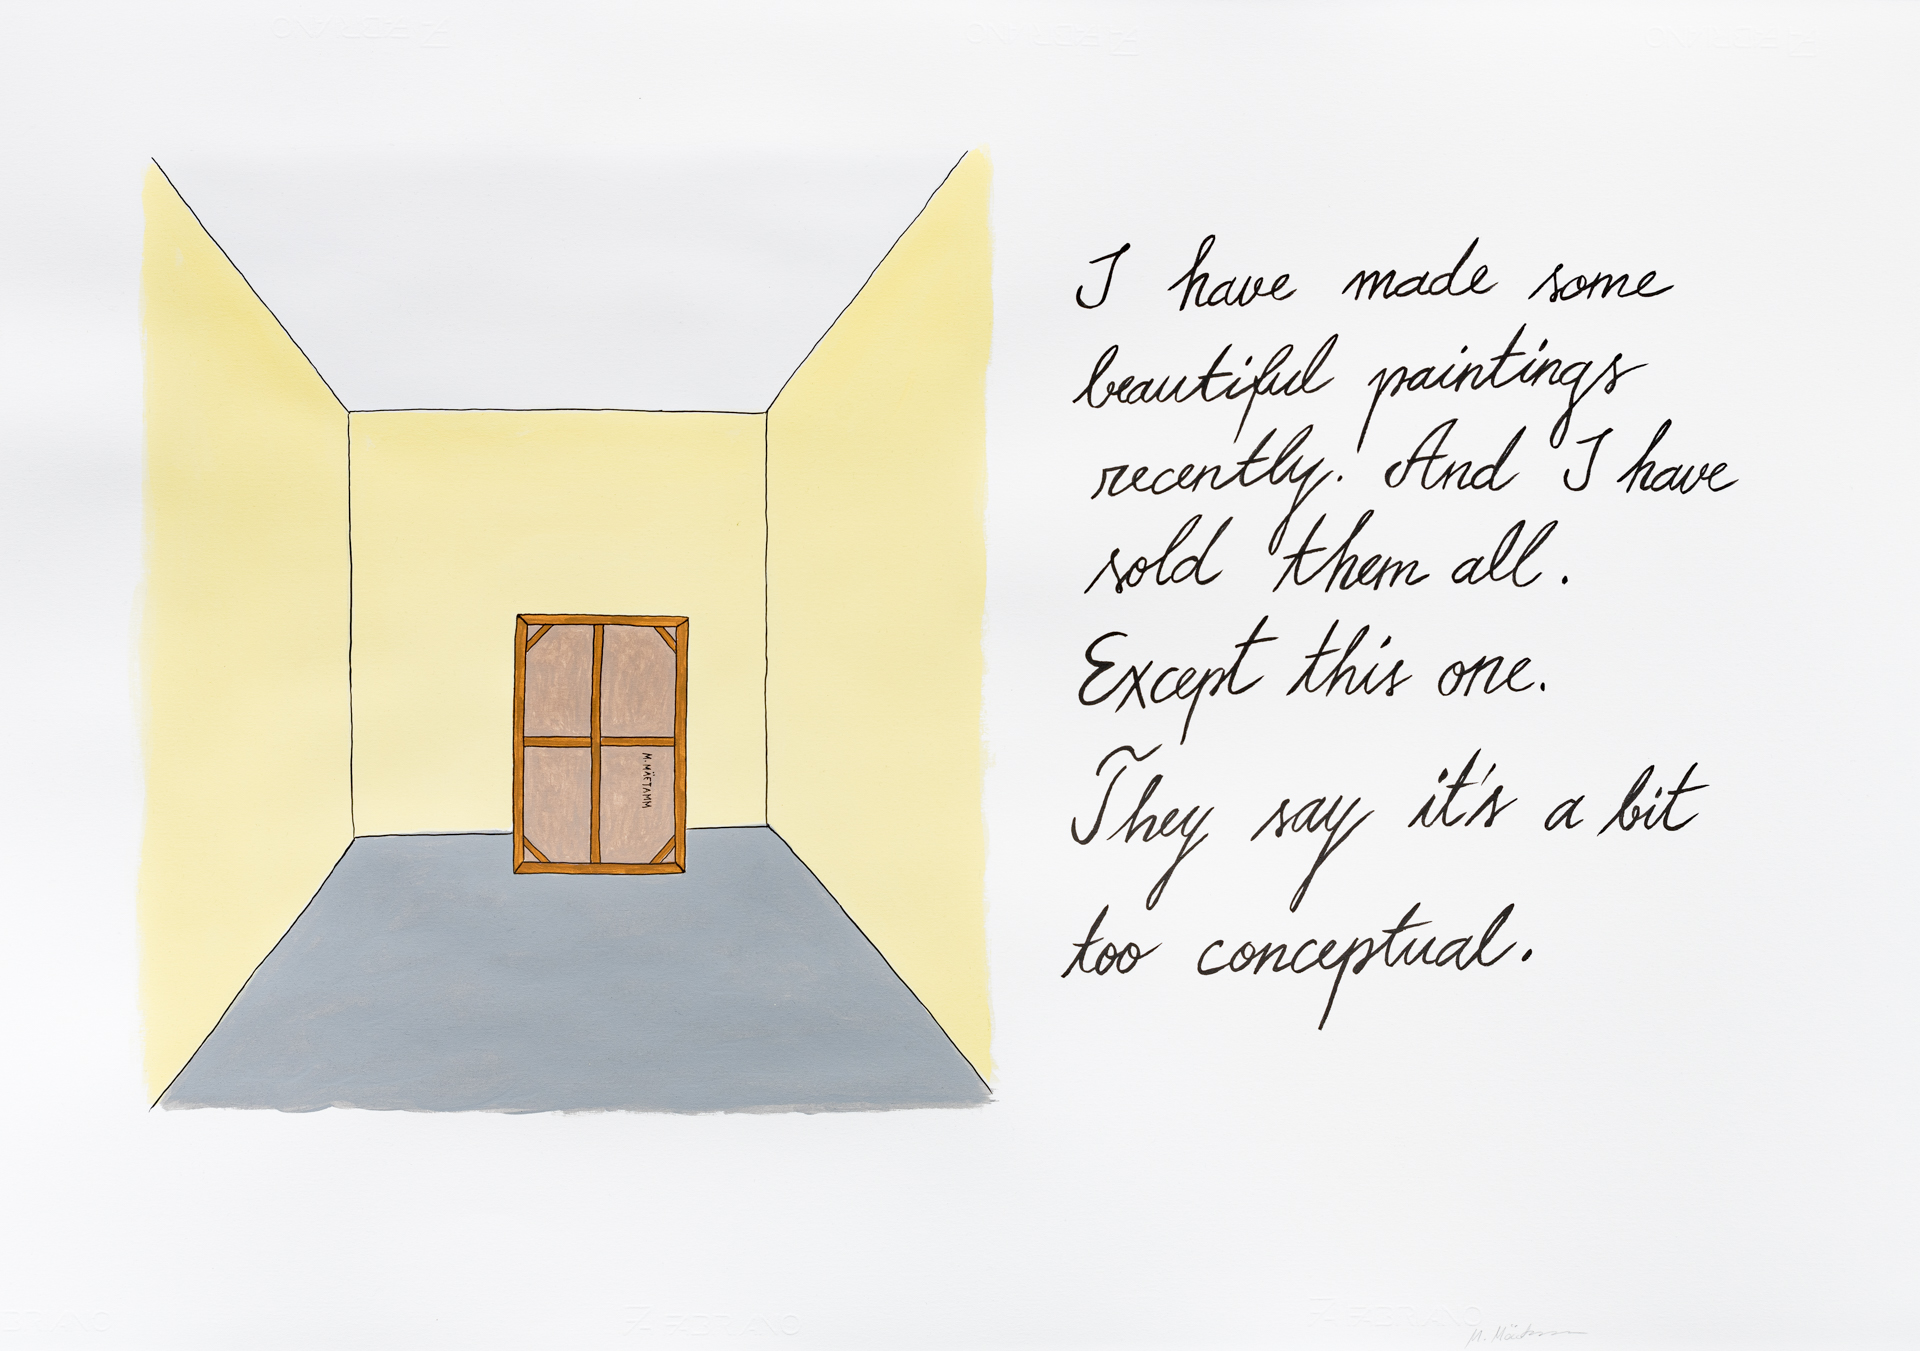 I have made some
beautiful paintings
recently. And I have
sold them all.
Except this one.
They say it's a bit
too conceptual.
M. MÄETAMM
FABRIANO
FABRIANO